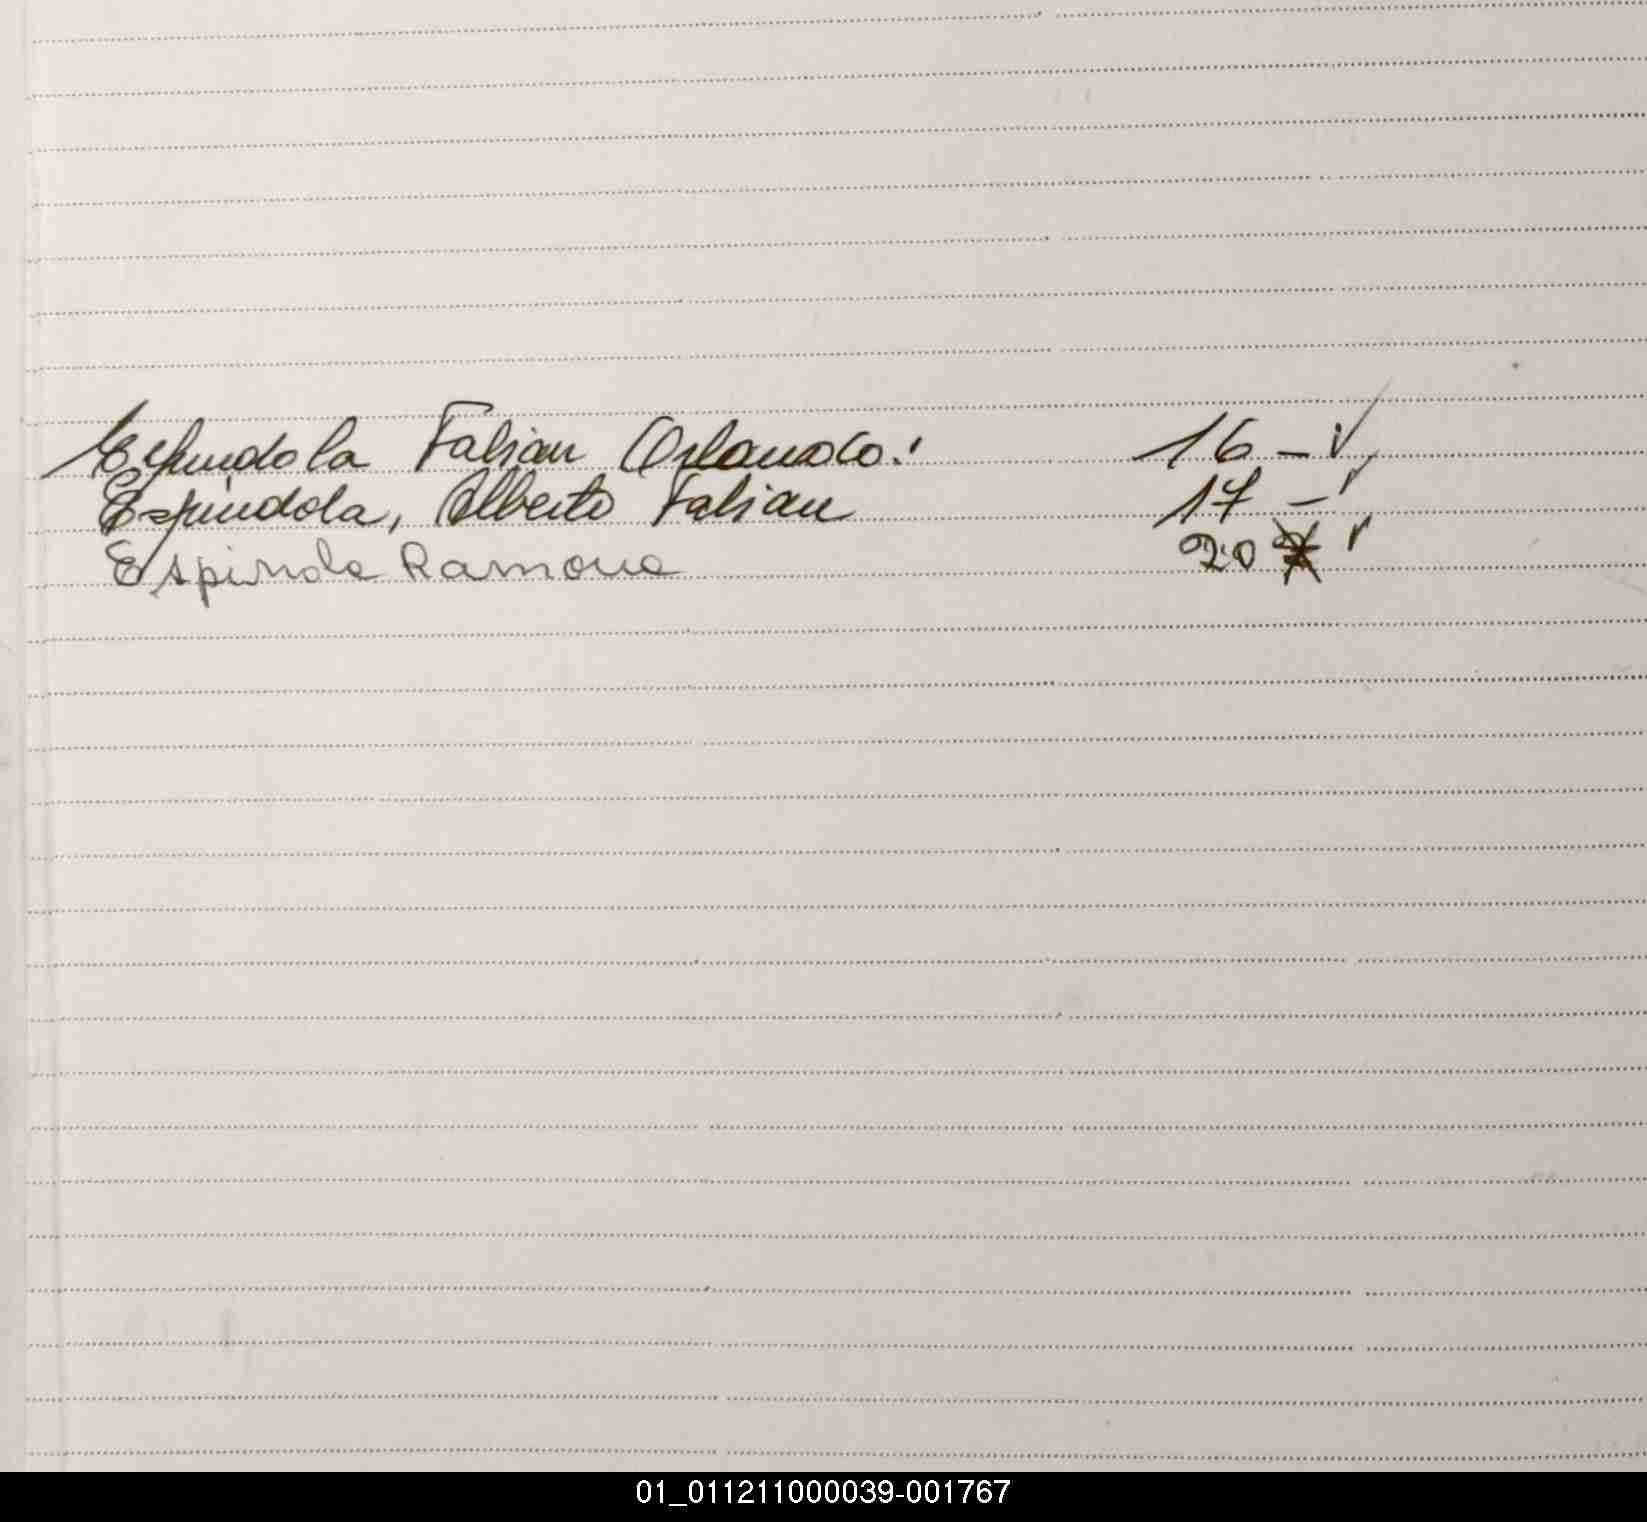 Espindola Fabian Orlando! 16 - ✓
Espíndola, Alberto Fabian 17 - ✓
Espinola Ramona 20 ✓
01_011211000039-001767